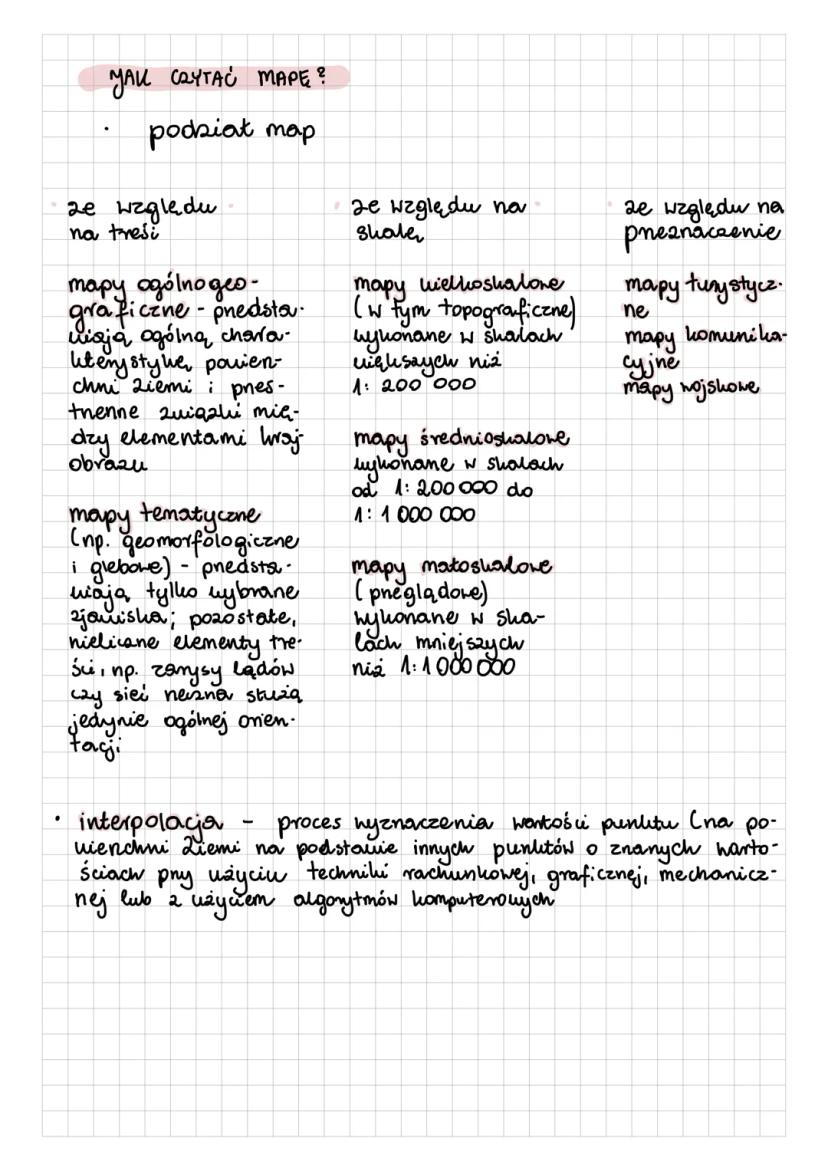 JAK CZYTAĆ MAPĘ?
• podział map
ze względu
na treść
mapy ogólnogeo-
graficzne - przedsta-
wiają ogólną chara-
kterystykę powierz-
chni Ziemi i przes-
trzenne związki mię-
dzy elementami kraj-
obrazu
mapy tematyczne
(np. geomorfologiczne
i glebowe) - przedsta-
wiają tylko wybrane
zjawiska; pozostałe,
nieliczne elementy tre-
ści, np. zarysy lądów
czy sieć rzeczna służą
jedynie ogólnej orien-
tacji
ze względu na
skalę
mapy wielkoskalowe
(w tym topograficzne)
wykonane w skalach
większych niż
1: 200 000
mapy średnioskalowe
wykonane w skalach
od 1: 200 000 do
1: 1 000 000
mapy małoskalowe
(przeglądowe)
wykonane w ska-
lach mniejszych
niż 1: 1 000 000
ze względu na
przeznaczenie
mapy turystycz-
ne
mapy komunika-
cyjne
mapy wojskowe
• interpolacja - proces wyznaczenia wartości punktu (na po-
wierzchni Ziemi na podstawie innych punktów o znanych warto-
ściach przy użyciu techniki rachunkowej, graficznej, mechanicz-
nej lub z użyciem algorytmów komputerowych